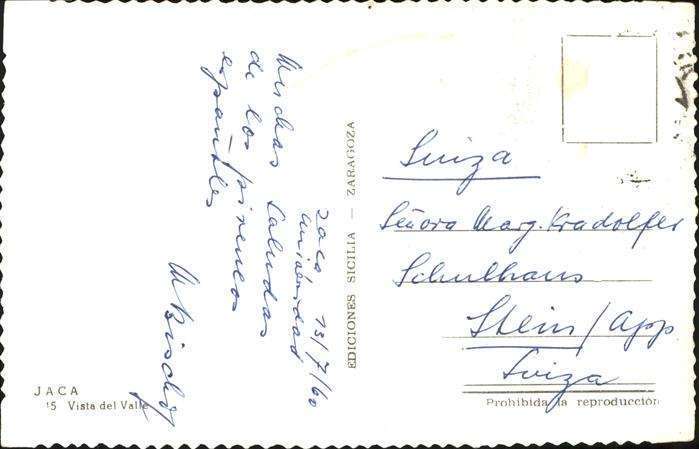 Jaca 13/7/60
Universidad
Muchas Saludas
de los pireneos
españoles
M Bischof
EDICIONES SICILIA — ZARAGOZA
Suiza
Señora Marg. Kradolfer
Schulhaus
Stein / App
Suiza
JACA
15 Vista del Valle
Prohibida la reproducción